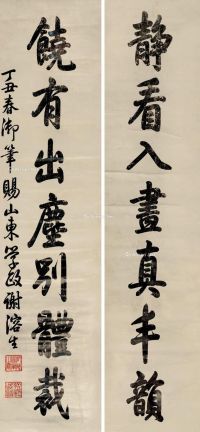 静看入畫真丰韻
饒有出塵别體裁
丁丑春御筆賜山東学政謝溶生